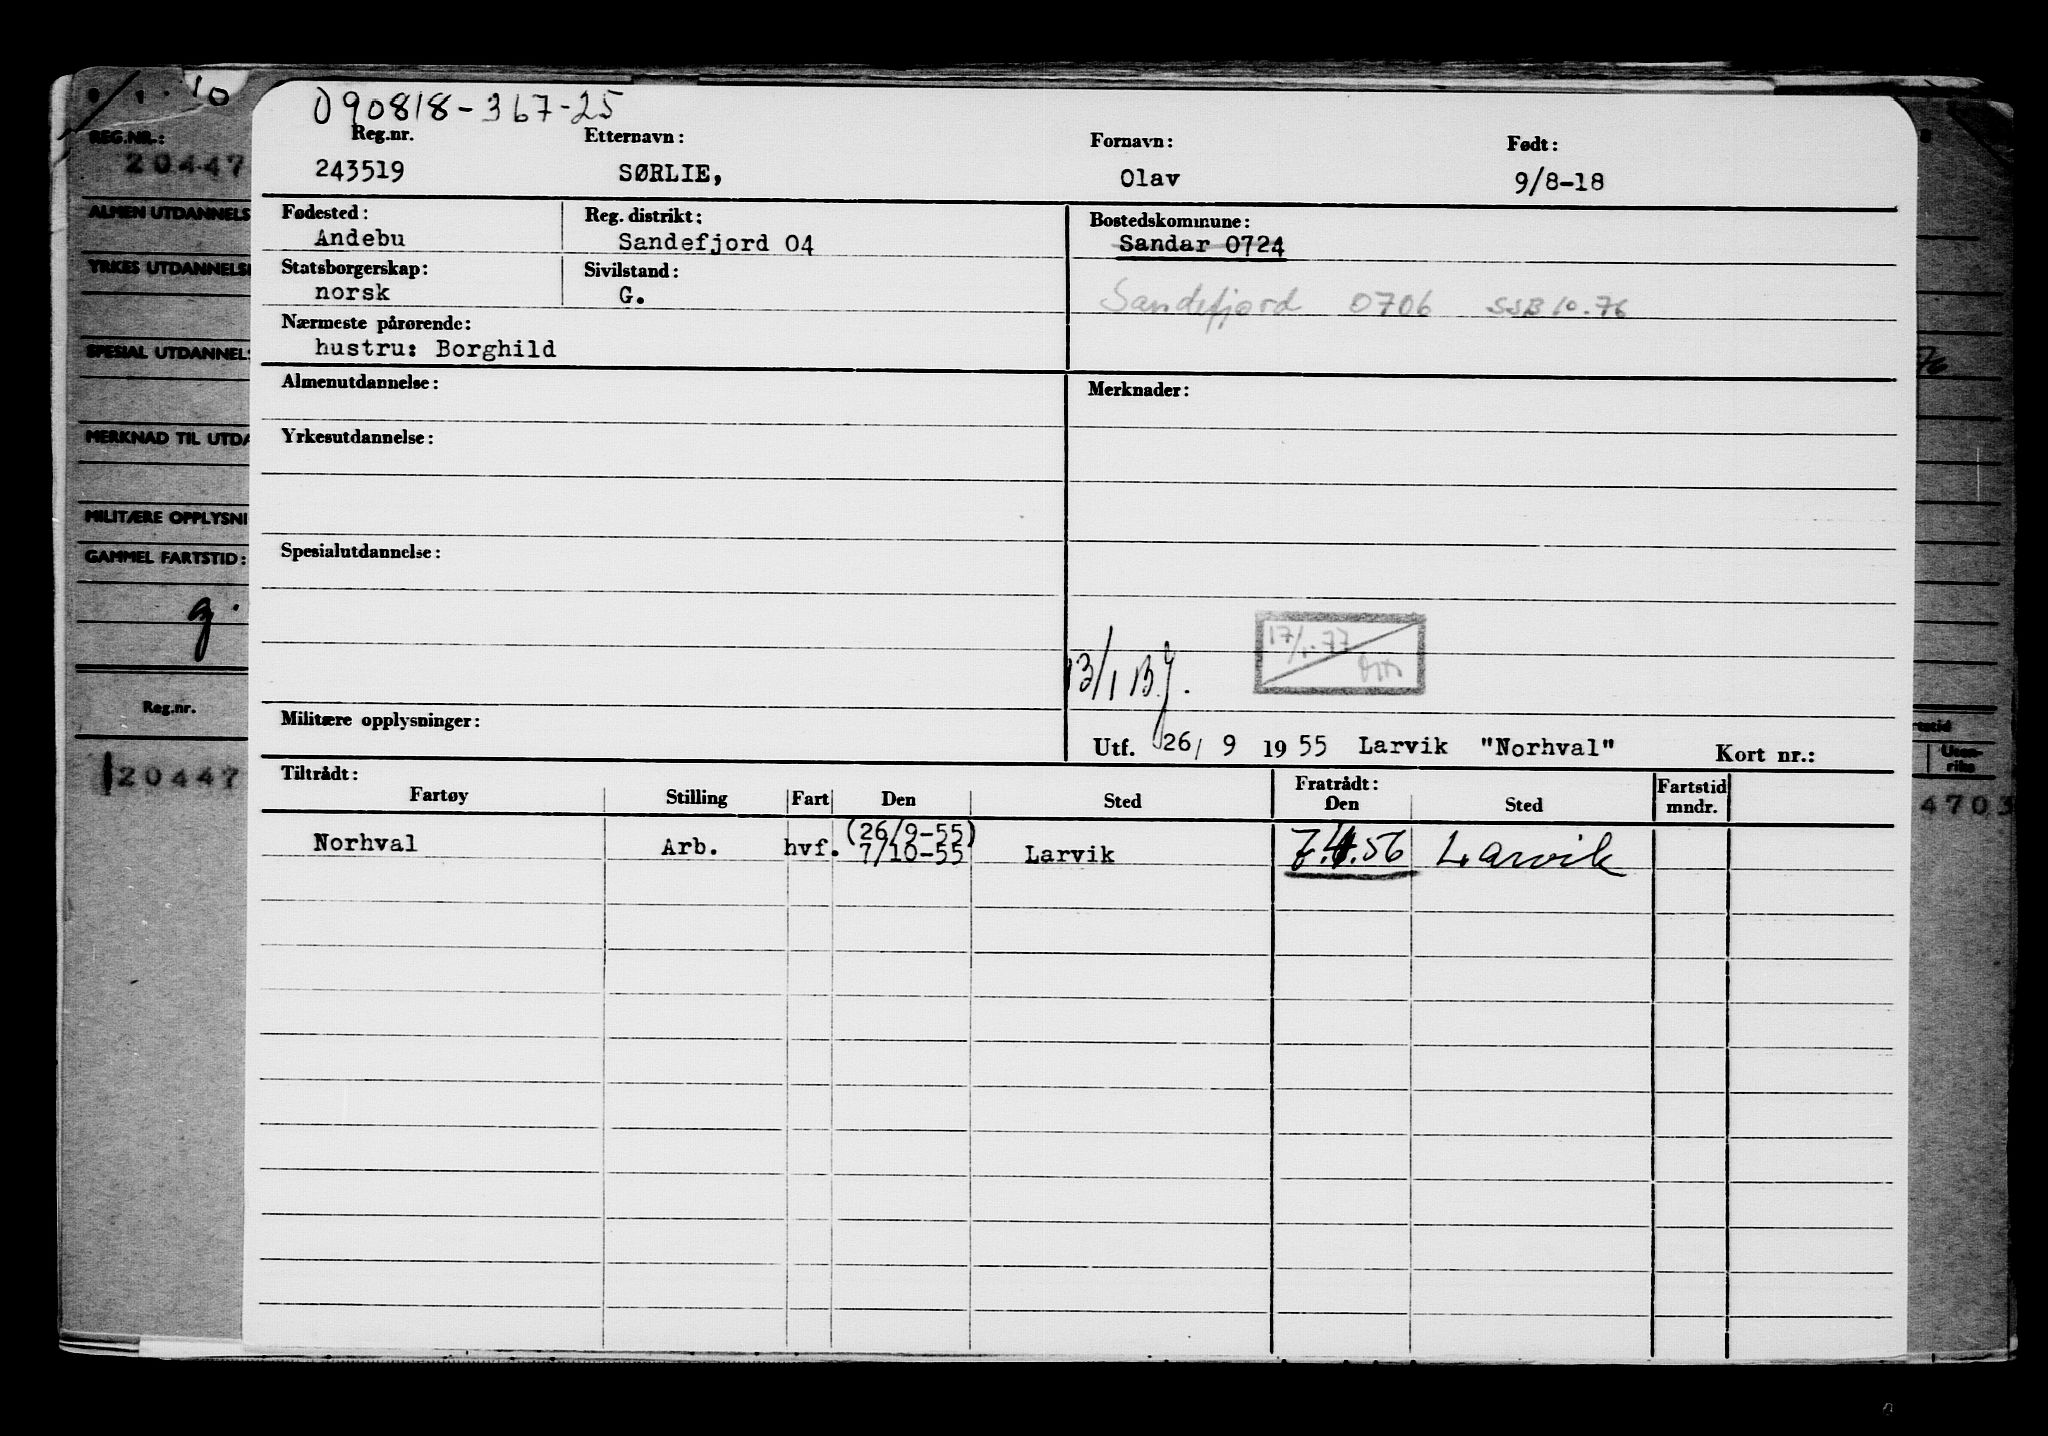 1 · 10
090818-367-25
REG.NR.:
20447
Reg.nr. Etternavn: Fornavn: Født:
243519 SØRLIE, Olav 9/8-18
ALMEN UTDANNELS
Fødested: Reg. distrikt: Bostedskommune:
Andebu Sandefjord 04 Sandar 0724
YRKES UTDANNELSE
Statsborgerskap: Sivilstand:
norsk G. Sandefjord 0706 SSB 10.76
Nærmeste pårørende:
hustru: Borghild
SPESIAL UTDANNELS
Almenutdannelse: Merknader:
MERKNAD TIL UTDA
Yrkesutdannelse:
MILITÆRE OPPLYSNI
GAMMEL FARTSTID:
Spesialutdannelse:
g.
17/1.77
13/1 B.J.
Reg.nr.
Militære opplysninger:
Utf. 26/9 1955 Larvik "Norhval" Kort nr.:
rtstid
Uten-
riks
20447
4703
Tiltrådt: Fratrådt: Fartstid
Fartøy Stilling Fart Den Sted Den Sted mndr.
(26/9-55)
Norhval Arb. hvf. 7/10-55 Larvik 7.4.56 Larvik